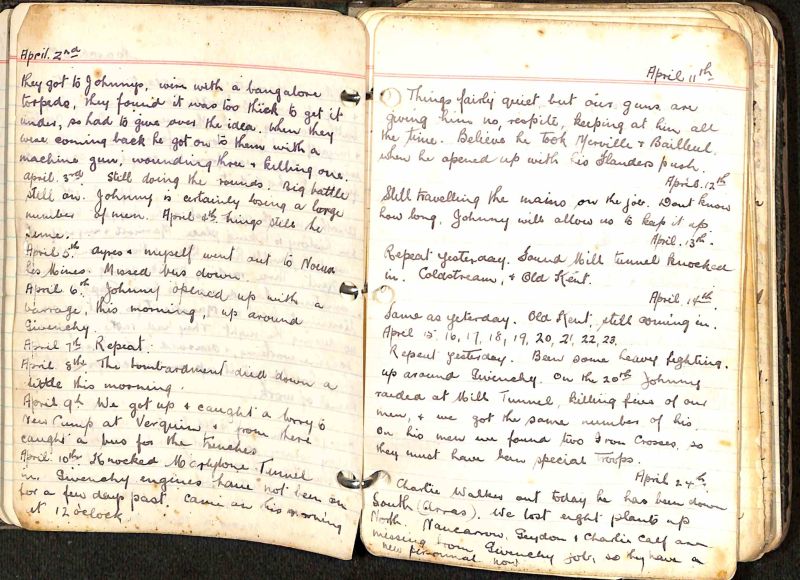 April. 2nd
they got to Johnnys, wire with a bangalore
torpedo, they found it was too thick to get it
under, so had to give over the idea. When they
were coming back he got on to them with a
machine gun, wounding three & killing one.
April. 3rd. Still doing the rounds. Big battle
still on. Johnny is certainly losing a large
number of men. April 4th. Things still the
same.
April 5th. Ayres & myself went out to Noeux
les Mines. Missed bus down.
April 6th. Johnny opened up with a
barrage, this morning, up around
Givenchy.
April 7th. Repeat.
April. 8th. The bombardment died down a
little this morning.
April 9th. We got up & caught a lorry to
Verquin, & from there
caught a bus for the trenches
April. 10th. Knocked Marylebone Tunnel
in. Givenchy engines have not been on
for a few days past. Came on this morning
at 12 oclock.
April 11th
Things fairly quiet but our guns are
giving him no, respite, keeping at him all
the time. Believe he took Merville & Bailleul.
when he opened up with his Flanders push.
April. 12th
Still travelling the mains on the job. Dont know
how long, Johnny will allow us to keep it up.
April. 13th.
Repeat yesterday. Found Mill tunnel knocked
in. Coldstreams, & Old Kent.
April, 14th.
Same as yesterday. Old Kent, still coming in.
April 15. 16, 17, 18, 19, 20, 21, 22, 23.
Repeat yesterday. Been some heavy fighting.
up around Givenchy. On the 20th Johnny
raided at Mill Tunnel, killing five of our
men, & we got the same number of his.
On his men we found two Iron Crosses, so
they must have been special Troops.
April 24th.
Charlie Walker out today he has been down
South (Arras). We lost eight plants up
North. Nancarrow, & Charlie Calf are
missing from Givenchy job, so they have a
new personnel now